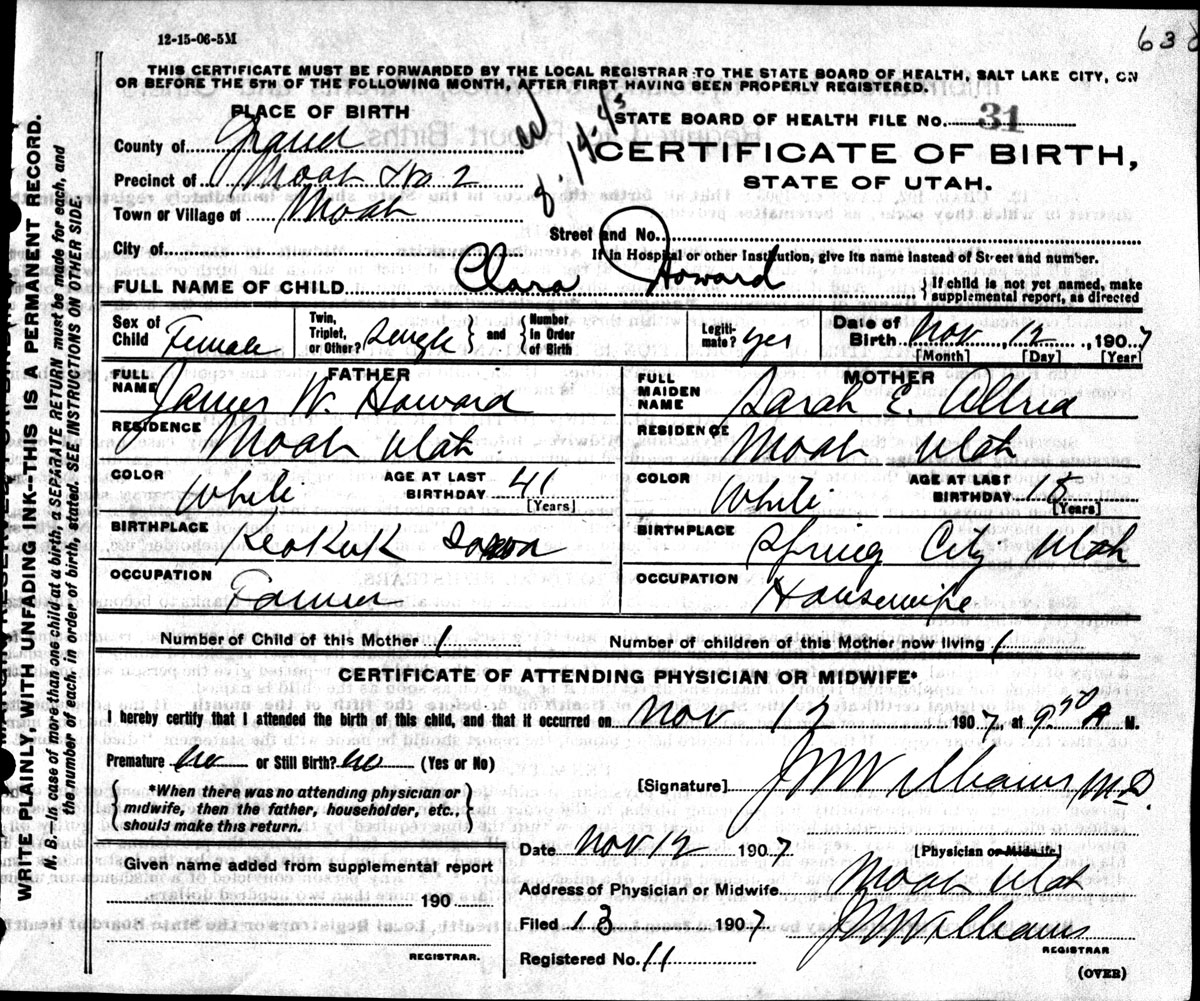 12-15-06-5M
THIS CERTIFICATE MUST BE FORWARDED BY THE LOCAL REGISTRAR TO THE STATE BOARD OF HEALTH, SALT LAKE CITY, ON
OR BEFORE THE 5TH OF THE FOLLOWING MONTH, AFTER FIRST HAVING BEEN PROPERLY REGISTERED.
PLACE OF BIRTH
STATE BOARD OF HEALTH FILE No. 31
County of Grand
CERTIFICATE OF BIRTH,
Precinct of Moab No. 2
STATE OF UTAH.
Town or Village of Moab
Street and No.
City of
If in Hospital or other Institution, give its name instead of Street and number.
FULL NAME OF CHILD Clara Howard
{ If child is not yet named, make
supplemental report, as directed
Sex of Child Female
Twin, Triplet, or Other? Single } and { Number in Order of Birth
Legitimate? yes
Date of Birth Nov 12, 1907
[Month] [Day] [Year]
FATHER
FULL NAME James W. Howard
MOTHER
FULL MAIDEN NAME Sarah E. Allred
RESIDENCE Moab Utah
RESIDENCE Moab Utah
COLOR White AGE AT LAST BIRTHDAY 41 [Years]
COLOR White AGE AT LAST BIRTHDAY 15 [Years]
BIRTHPLACE Keokuk Iowa
BIRTHPLACE Spring City Utah
OCCUPATION Farmer
OCCUPATION Housewife
Number of Child of this Mother 1
Number of children of this Mother now living 1
CERTIFICATE OF ATTENDING PHYSICIAN OR MIDWIFE*
I hereby certify that I attended the birth of this child, and that it occurred on Nov 12 1907, at 9 30 A M.
Premature no or Still Birth? no (Yes or No)
[Signature] J W Williams M.D.
*When there was no attending physician or
midwife, then the father, householder, etc.,
should make this return.
Date Nov 12 1907
[Physician or Midwife]
Given name added from supplemental report
190
REGISTRAR.
Address of Physician or Midwife Moab Utah
Filed 13 1907 J W Williams
REGISTRAR
Registered No. 11
(OVER)
WRITE PLAINLY, WITH UNFADING INK--THIS IS A PERMANENT RECORD.
N. B.--In case of more than one child at a birth, a SEPARATE RETURN must be made for each, and
the number of each, in order of birth, stated. SEE INSTRUCTIONS ON OTHER SIDE.